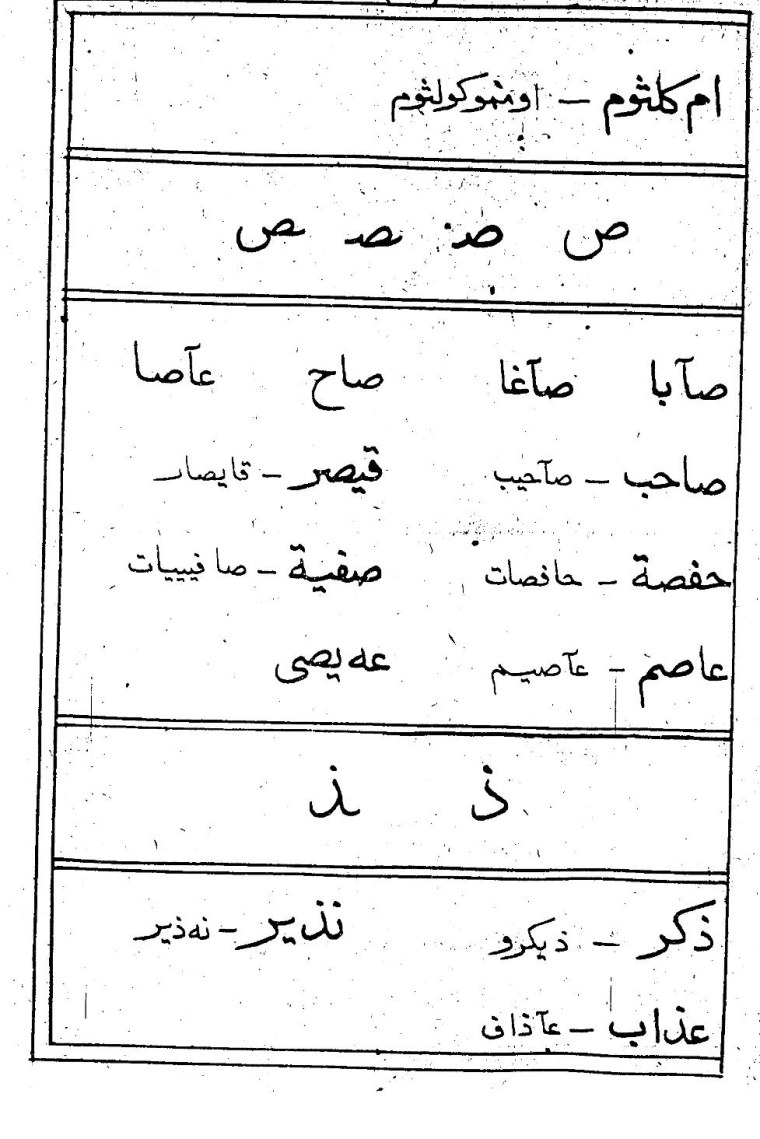 ام كلثوم – اوممو كولثوم
ص صـ ـصـ ـص
صآبا صآغا صاح عآصا
صاحب – صآحیب قیصر – قایصار
حفصة – حافصات صفیة – صافیییات
عاصم – عآصیم عه‌یصی
ذ ـذ
ذكر – ذیكرو نذیر – نه‌ذیر
عذاب – عآذاب